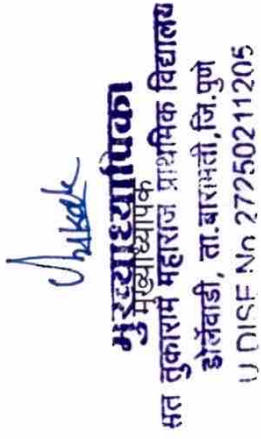 मुख्याध्यापिका
मुख्याध्यापक
संत तुकाराम महाराज प्राथमिक विद्यालय
डोर्लेवाडी, ता.बारामती,जि.पुणे
U DISE No 27250211205